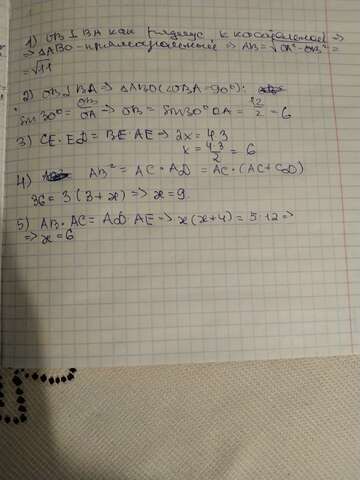 1) OB ⊥ BA как радиус, к касательной ⇒
⇒ △ABO - прямоугольный ⇒ AB = √OA² - OB² =
= √11
2) OB ⊥ BA ⇒ △ABO (∠OBA = 90°):
sin 30° = OB/OA → OB = sin 30° · OA = 12/2 = 6
3) CE · ED = BE · AE ⇒ 2x = 4·3
x = 4·3/2 = 6
4) AB² = AC · AD = AC · (AC + CD)
36 = 3(3 + x) ⇒ x = 9.
5) AB · AC = AD · AE ⇒ x(x+4) = 5·12 ⇒
⇒ x = 6